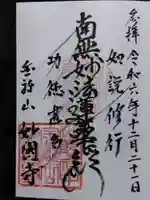 参拝 令和六年十二月二十一日
如説修行
南無妙法蓮華経
功徳甚多
妙圀寺